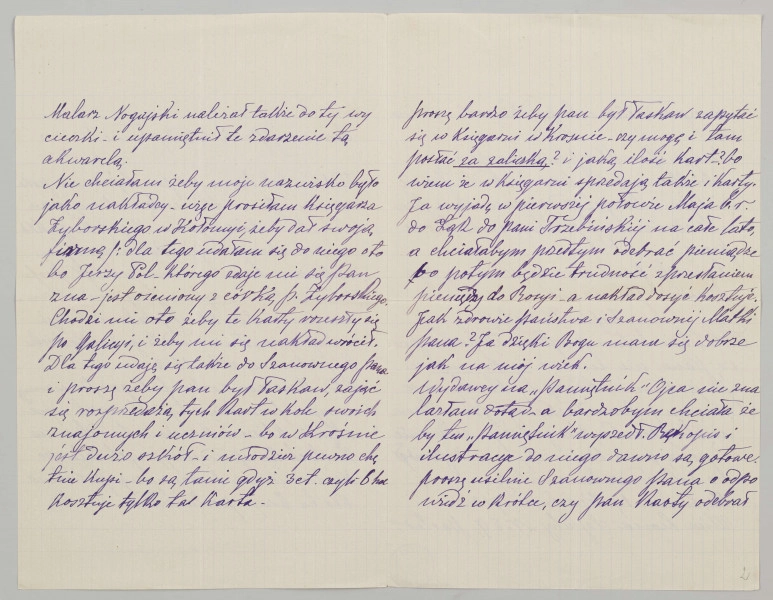 Malarz Nogajski należał także do tej wy
cieczki - i upamiętnił te zdarzenie tą
akwarelą.
Nie chciałam żeby moje nazwisko było
jako nakładcy - więc prosiłam Księgarza
Zyborskiego w Kołomyi, żeby dał swoją
firmę /: dla tego udałam się do niego oto
bo Jerzy Tel- którego zdaje mi się Pan
zna - jest ożeniony z córką p. Zyborskiego.
Chodzi mi oto żeby te Karty rozeszły się
po Galicyi, i żeby mi się nakład wrócił.
Dla tego udaję się także do Szanownego Pana
i proszę żeby pan był łaskaw, zająć
się rozprzedażą, tych Kart w kole swoich
znajomych i uczniów - bo w Krośnie
jest dużo szkół - i młodzież pewno chę
tnie kupi - bo są tanie gdyż 3 ct. czyli 6 hal
Kosztuje tylko ta Karta -
proszę bardzo żeby pan był łaskaw zapytać
się w Księgarni w Krośnie - czy mogę i tam
posłać za zaliczką? i jaką ilość kart? bo
wiem że w Księgarni sprzedają także i Karty.
Ja wyjadę w pierwszej połowie Maja b.r.
do Łąk do Pani Trzebińskiej na całe lato,
a chciałabym przedtym odebrać pieniądze
bo potym będzie trudność z przesłaniem
pieniędzy do Rosyi - a nakład dosyć kosztuje.
Jak zdrowie Państwa i Szanownej Matki
pana? Ja dzięki Bogu mam się dobrze
jak na mój wiek.
Wydawcy na „Pamiętnik" Ojca nie zna
lazłam dotąd - a bardzobym chciała że
by ten „Pamiętnik" wyszedł. Rękopis i
ilustracye do niego dawno są gotowe.
proszę usilnie Szanownego Pana o odpo
wiedź w krótce, czy pan Karty odebrał